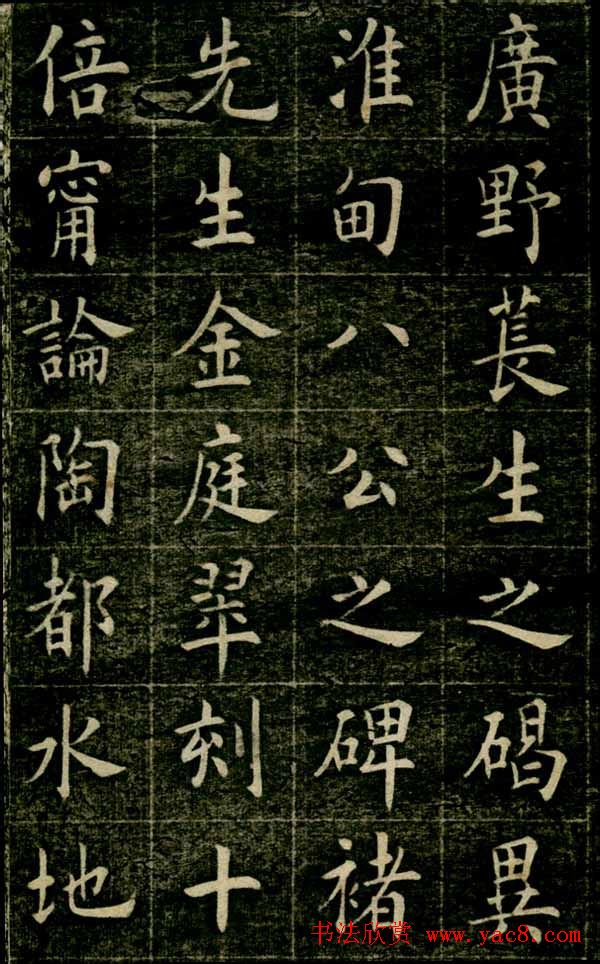 廣野萇生之碣異
淮甸八公之碑褚
先生金庭翠刻十
倍甯論陶都水地
书法欣赏 www.yac8.com